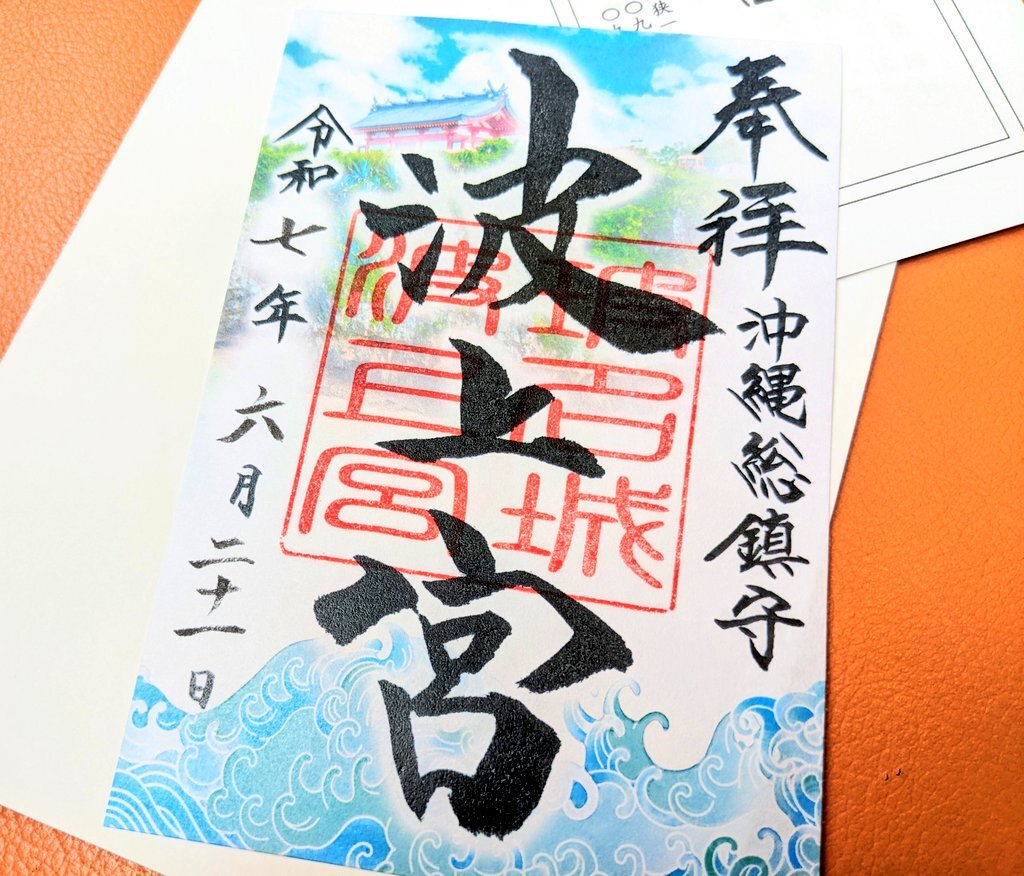 奉拝 沖縄総鎮守
波上宮
令和七年 六月二十一日
名城
波上宮
狭一
〇九